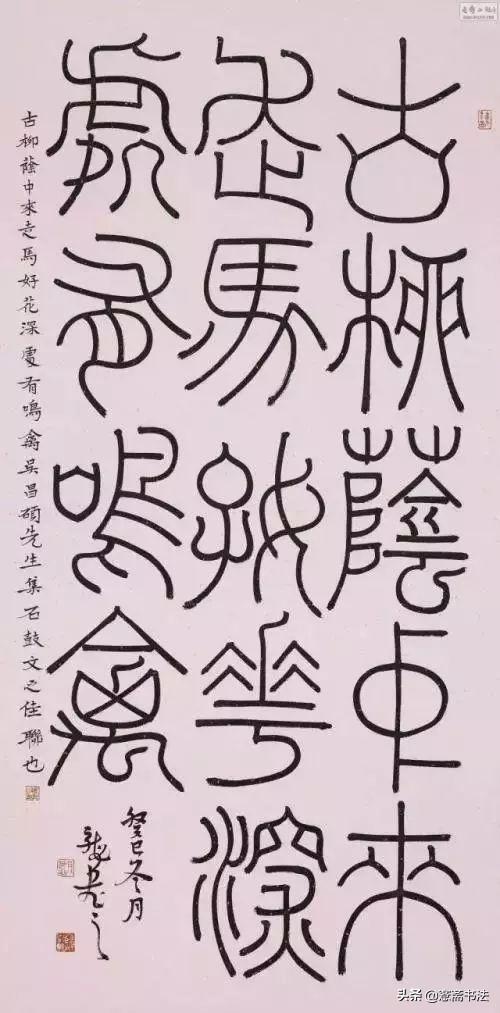 古柳蔭中來
走馬好花深
處有鳴禽
古柳蔭中來走馬好花深處有鳴禽吳昌碩先生集石鼓文之佳聯也
癸巳冬月
頭条 @慧斋书法